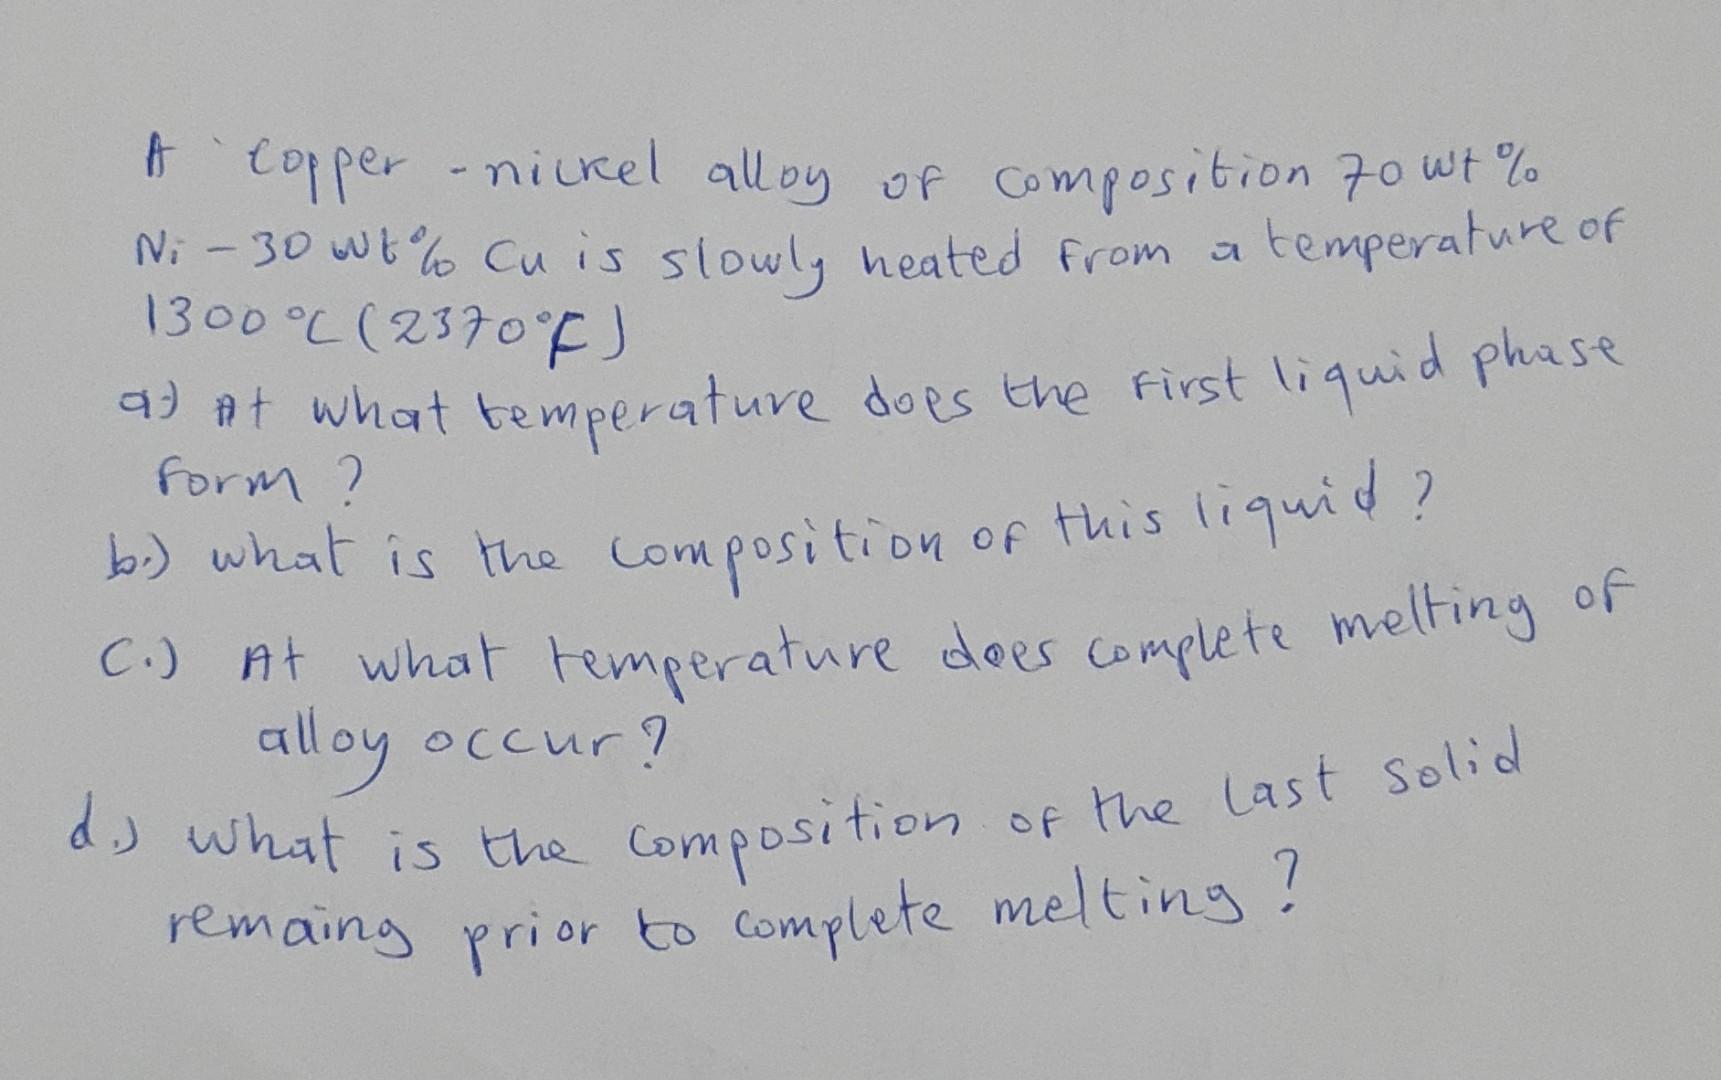 A copper - nickel alloy of composition 70 wt%
Ni - 30 wt% Cu is slowly heated from a temperature of
1300 °C (2370°F)
a.) At what temperature does the first liquid phase
form ?
b.) what is the composition of this liquid ?
C.) At what temperature does complete melting of
alloy occur ?
d.) what is the composition of the last solid
remaing prior to complete melting ?